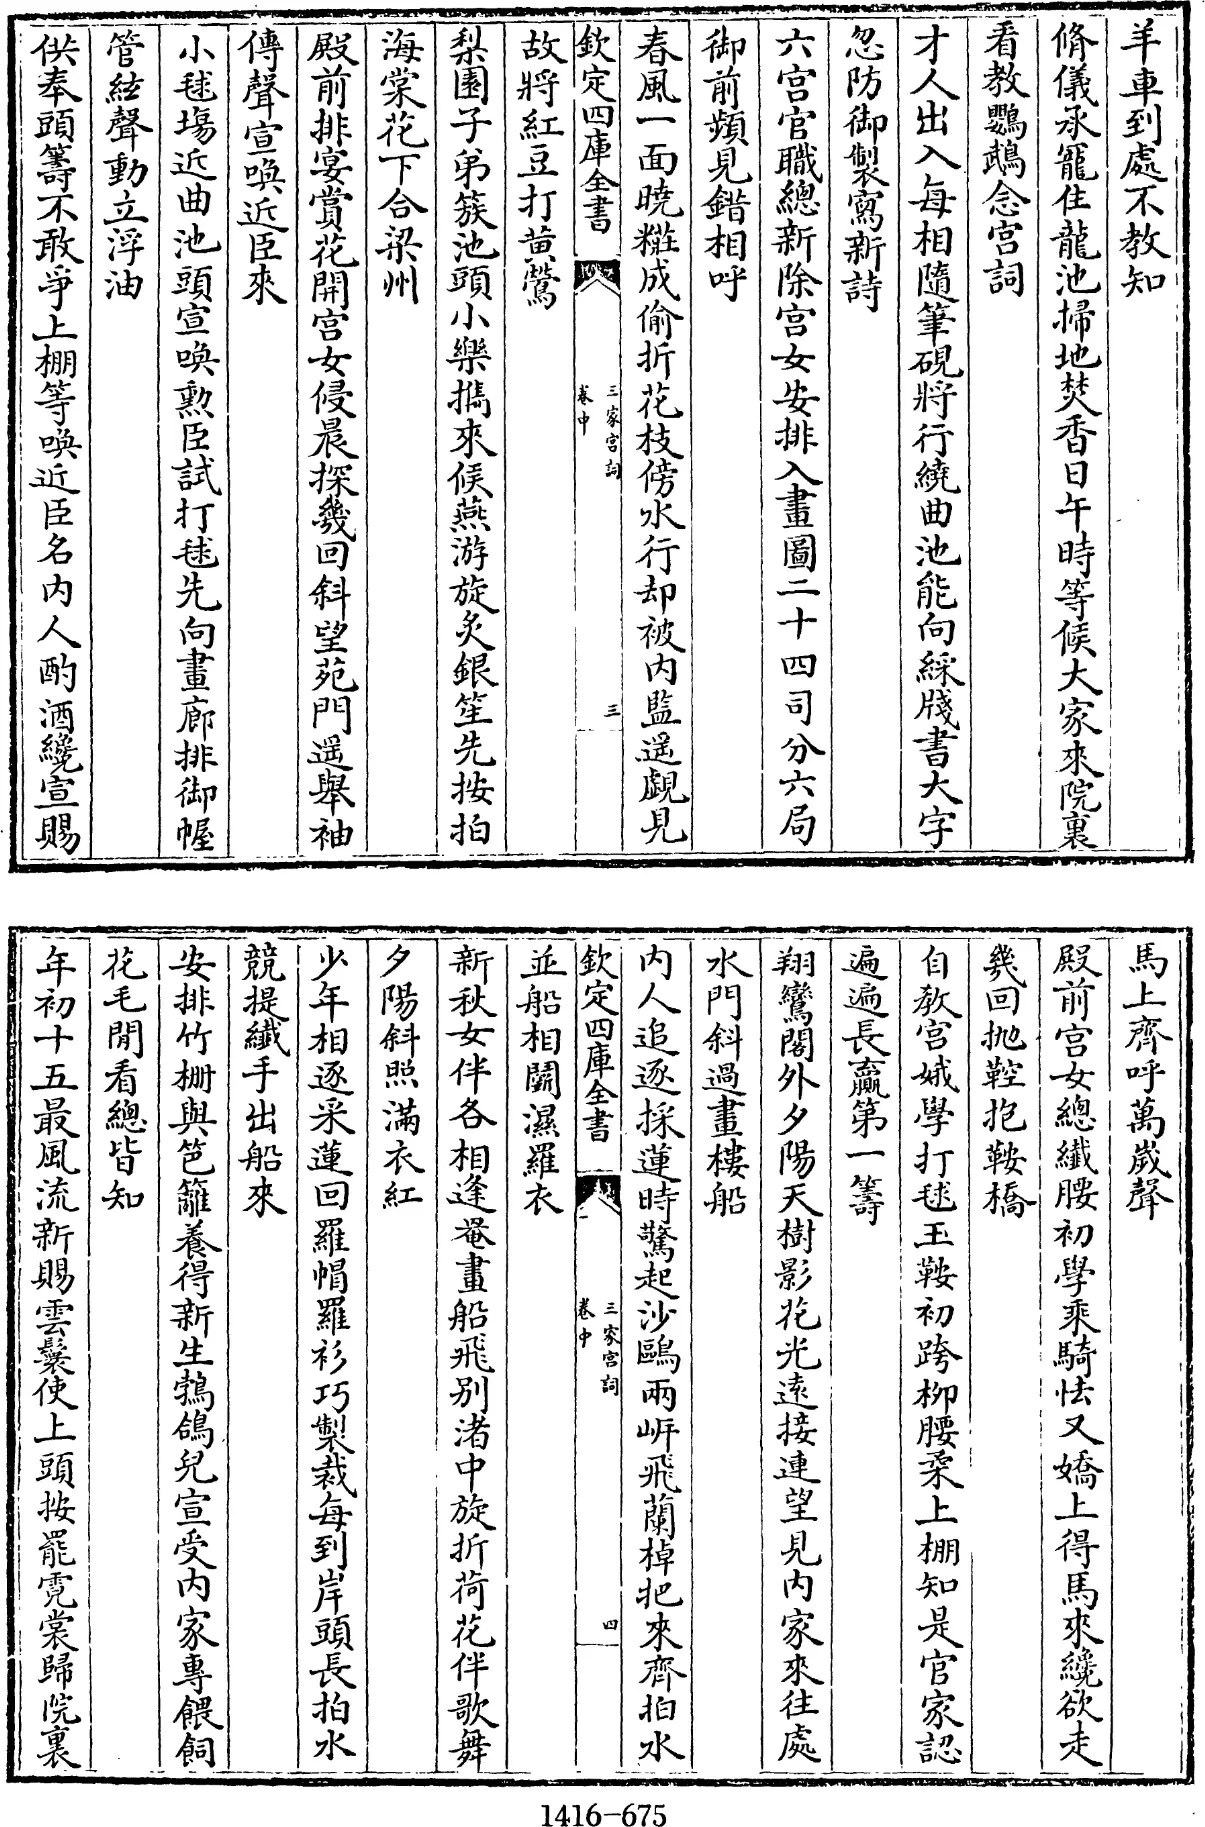 羊車到處不教知
脩儀承寵住龍池掃地焚香日午時等候大家來院裏
看教鸚鵡念宫詞
才人出入每相隨筆硯將行繞曲池能向綵牋書大字
忽防御製寫新詩
六宫官職總新除宫女安排入畫圖二十四司分六局
御前頻見錯相呼
春風一面曉粧成偷折花枝傍水行却被内監遥覷見
欽定四庫全書
三家宫詞
卷中
三
故將紅豆打黄鶯
梨園子弟簇池頭小樂攜來候燕游旋炙銀笙先按拍
海棠花下合梁州
殿前排宴賞花開宫女侵晨探幾回斜望苑門遥舉袖
傳聲宣喚近臣來
小毬塲近曲池頭宣喚勲臣試打毬先向畫廊排御幄
管絃聲動立浮油
供奉頭籌不敢爭上棚等喚近臣名内人酌酒纔宣賜
馬上齊呼萬歲聲
殿前宫女總纖腰初學乘騎怯又嬌上得馬來纔欲走
幾回抛鞚抱鞍橋
自教宫娥學打毬玉鞍初跨柳腰柔上棚知是官家認
遍遍長贏第一籌
翔鸞閣外夕陽天樹影花光遠接連望見内家來往處
水門斜過畫樓船
内人追逐採蓮時驚起沙鷗兩岸飛蘭棹把來齊拍水
欽定四庫全書
三家宫詞
卷中
四
並船相鬭濕羅衣
新秋女伴各相逢罨畫船飛别渚中旋折荷花伴歌舞
夕陽斜照滿衣紅
少年相逐采蓮回羅帽羅衫巧製裁每到岸頭長拍水
競提纖手出船來
安排竹栅與笆籬養得新生鵓鴿兒宣受内家專餵飼
花毛閒看總皆知
年初十五最風流新賜雲鬟使上頭按罷霓裳歸院裏
1416-675